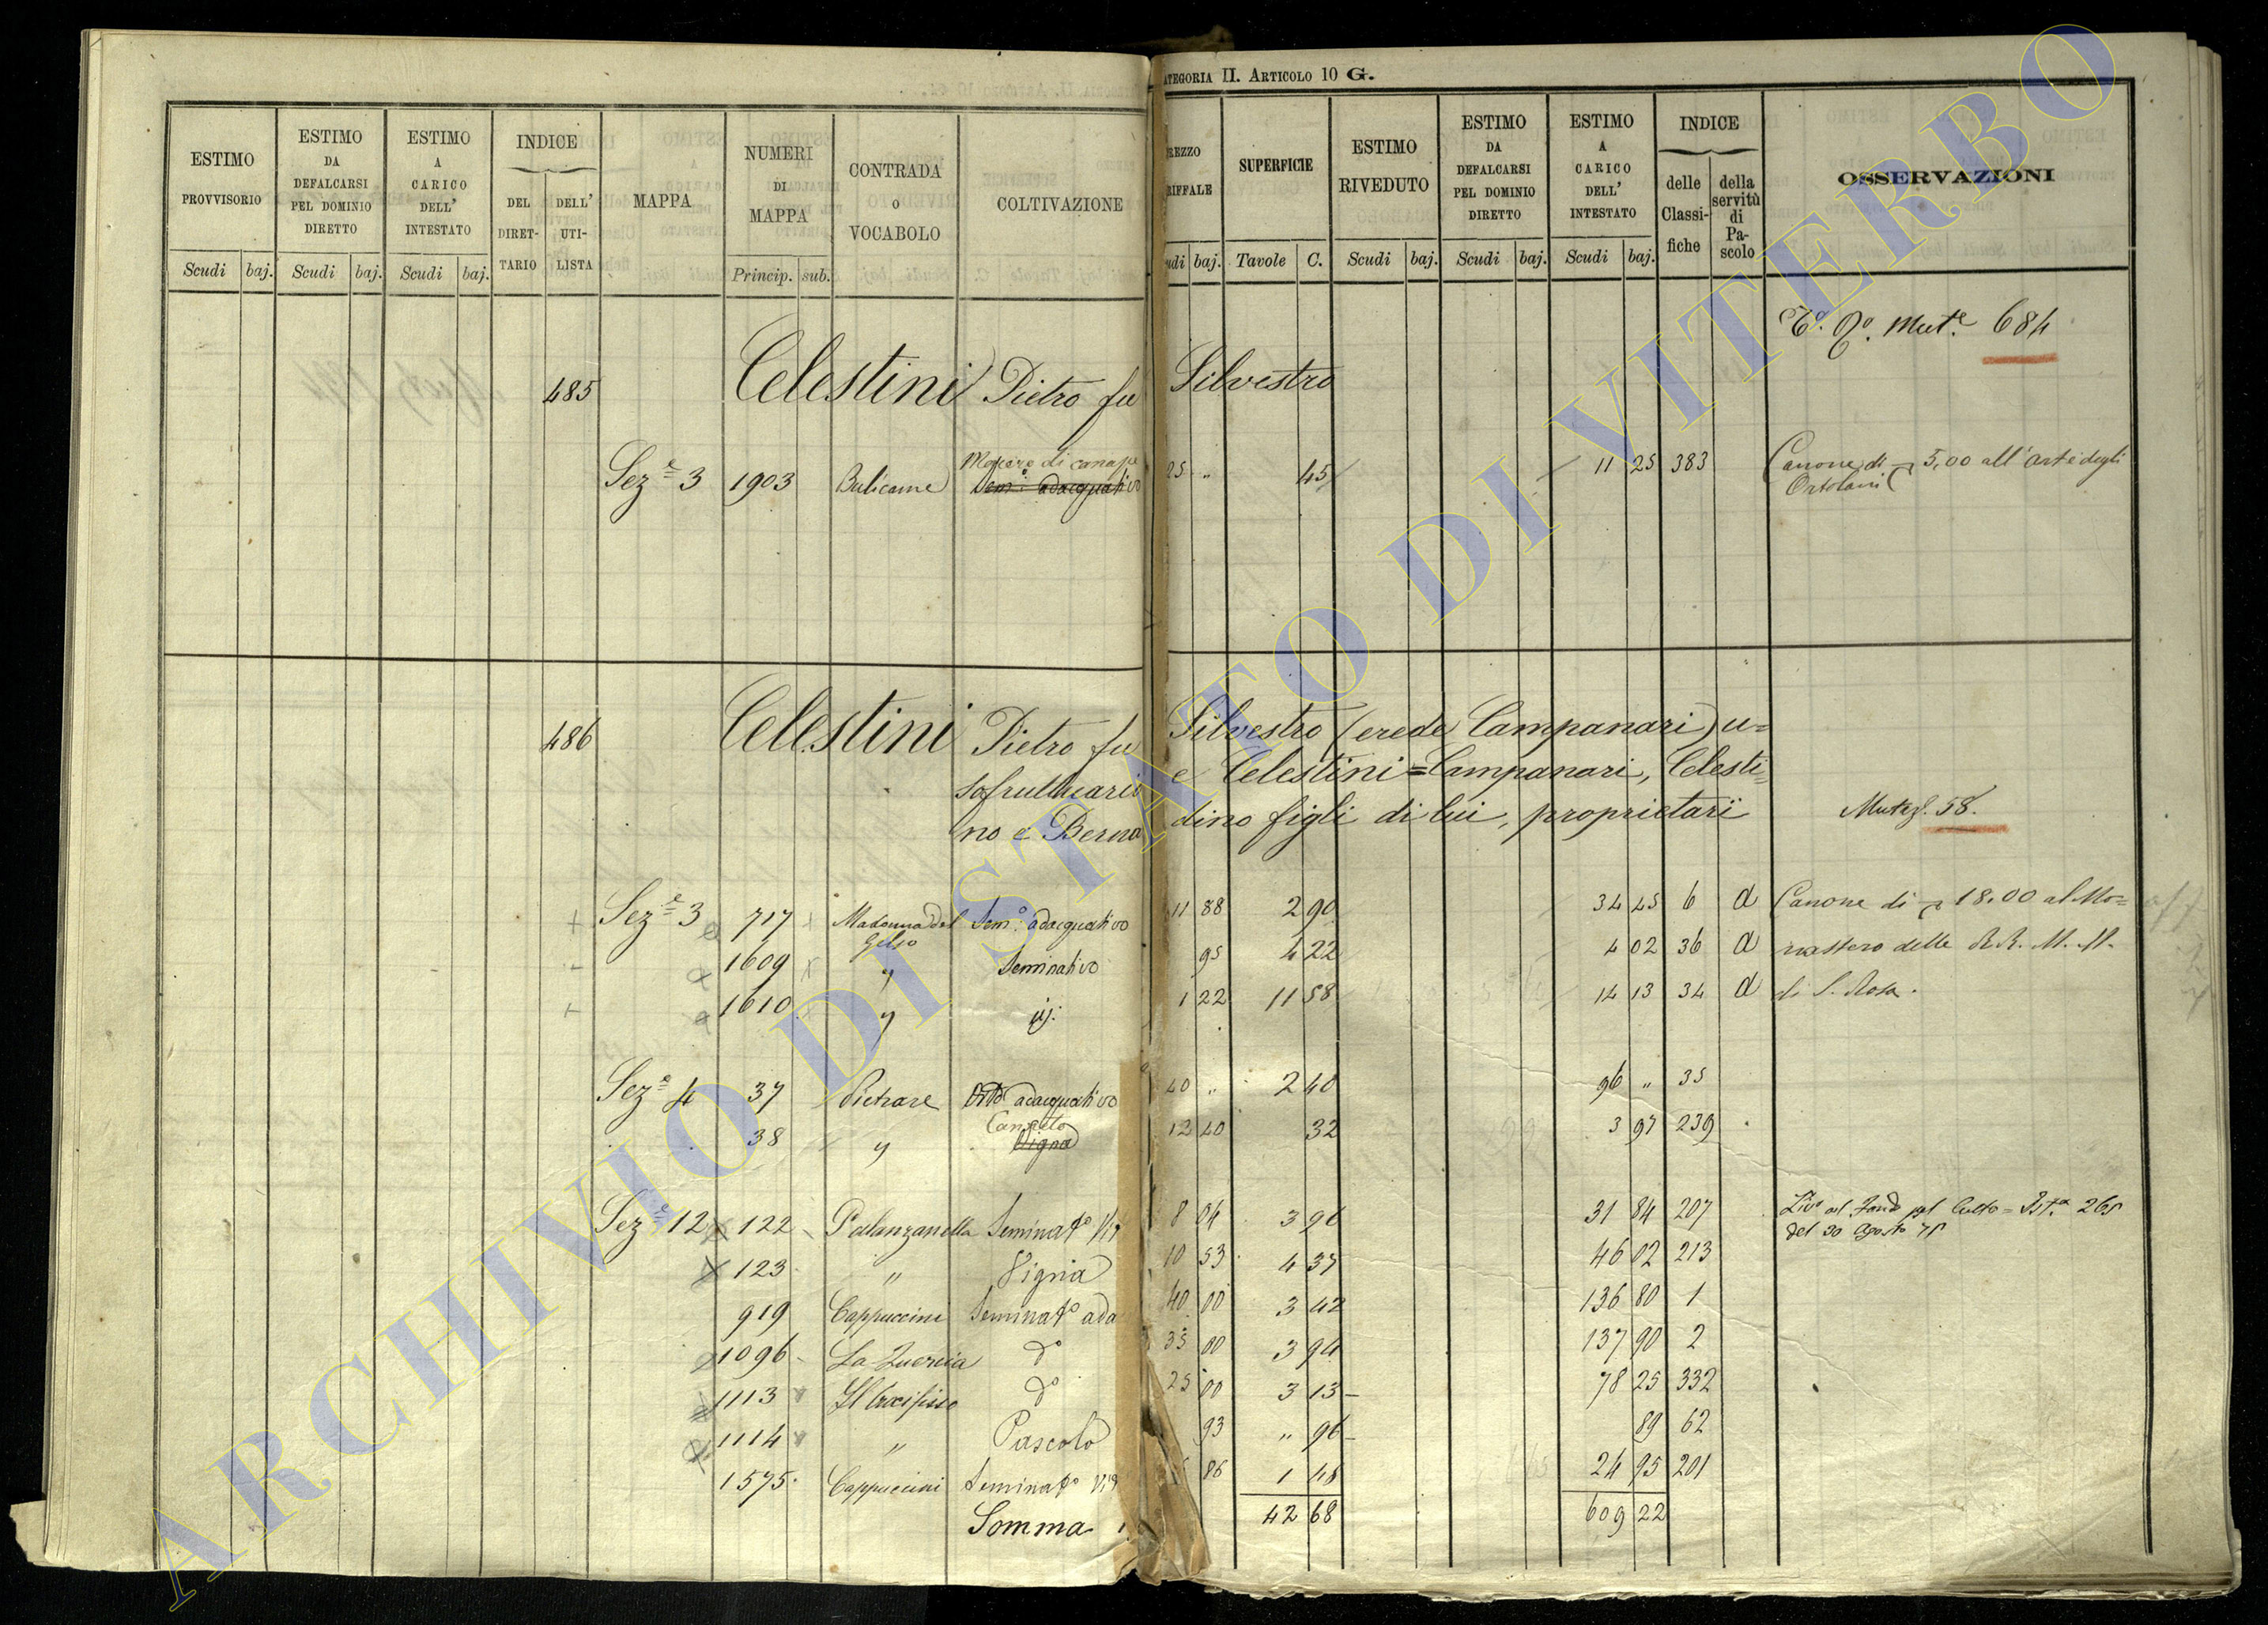 CATEGORIA II. ARTICOLO 10 G.
ESTIMO PROVVISORIO
ESTIMO DA DEFALCARSI PEL DOMINIO DIRETTO
ESTIMO A CARICO DELL' INTESTATO
INDICE
DEL DIRETTARIO
DELL' UTILISTA
MAPPA
NUMERI DI MAPPA
CONTRADA o VOCABOLO
COLTIVAZIONE
PREZZO TARIFFALE
SUPERFICIE
ESTIMO RIVEDUTO
ESTIMO DA DEFALCARSI PEL DOMINIO DIRETTO
ESTIMO A CARICO DELL' INTESTATO
INDICE
delle Classifiche
della servitù di Pascolo
OSSERVAZIONI
Scudi baj. Scudi baj. Scudi baj. Princip. sub. Scudi baj. Tavole C. Scudi baj. Scudi baj. Scudi baj.
Mut.e 684
485 Celestini Pietro fu Silvestro
Sez.e 3 1903 Bulicame Macero di canape Sem.o adacquativo 25 „ 45 11 25 383 Canone di 5,00 all'Arte degli
Ortolani
486 Celestini Pietro fu Silvestro (erede Campanari) u=
sofruttuario e Celestini=Campanari, Celesti=
no e Bernardino figli di lui, proprietari Mutaz. 58.
Sez.e 3 717 Madonna del Gelso Sem.o adacquativo 11 88 2 90 34 45 6 d Canone di 18.00 al Mo=
1609 „ Seminativo 95 4 22 4 02 36 d nastero delle RR. M. M.
1610 „ id. 1 22 11 58 14 13 34 d di S. Rosa.
Sez.e 4 37 Pietrare Orto adacquativo 40 „ 2 40 96 „ 35
38 „ Canneto Vigna 12 40 32 3 97 239
Sez.e 12 122 Palanzanella Seminat.o Vig 8 04 3 96 31 84 207 Liv.o al Fondo pel Culto = Ist.a 265
del 30 Agosto 75
123 „ Vigna 10 53 4 37 46 02 213
919 Cappuccini Seminat.o ada 40 00 3 42 136 80 1
1096 La Quercia d.o 35 00 3 94 137 90 2
1113 Il Crocifisso d.o 25 00 3 13 78 25 332
1114 „ Pascolo 93 „ 96 89 62
1575 Cappuccini Seminat.o Vig 86 1 48 24 95 201
Somma 42 68 609 22
ARCHIVIO DI STATO DI VITERBO